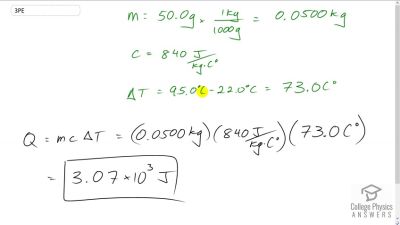 3PE
m: 50.0g × 1kg/1000g = 0.0500kg
c = 840 J/kg·C°
ΔT = 95.0°C - 22.0°C = 73.0C°
Q = mcΔT = (0.0500kg)(840 J/kg·C°)(73.0C°)
= 3.07×10³ J
College Physics
ANSWERS